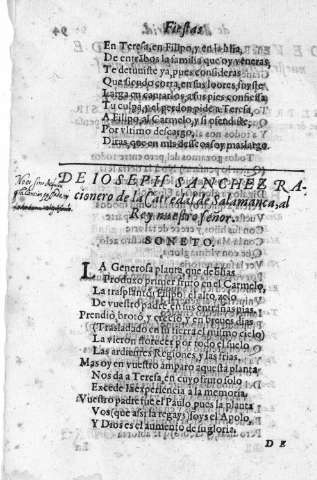 Fiestas
En Teresa, en Filipo, y en la Missa,
De entrambos la familia que oy veneras,
Te detuuiste ya, pues consideras
Que siendo corta, en sus loores, fuyste
Larga en cansarlos, a sus pies confiessa
Tu culpa, y el perdon pide a Teresa,
A Filipo, al Carmelo, y si ofendiste,
Por vltimo descargo,
Diras, que en mis desseos soy mas largo.
DE IOSEPH SANCHEZ RA-
cionero de la Catredal de Salamanca, al
Rey nuestro señor.
SONETO.
LA Generosa planta que de Elias
Produxo primer fruto en el Carmelo,
La trasplantò Filipo, el alto zelo
De vuestro padre en sus entrañas pias.
Prendiò, brotò y creciò, y en breues dias
(Trasladado en su tierra el mismo cielo)
La vieron florecer por todo el suelo
Las ardientes Regiones, y las frias.
Mas oy en vuestro amparo aquesta planta
Nos da a Teresa, en cuyo fruto solo
Excede la experiencia a la memoria.
Vuestro padre fue el Paulo, pues la planta
Vos (que assi la regays) soys el Apolo,
Y Dios es el aumento de su gloria.
DE